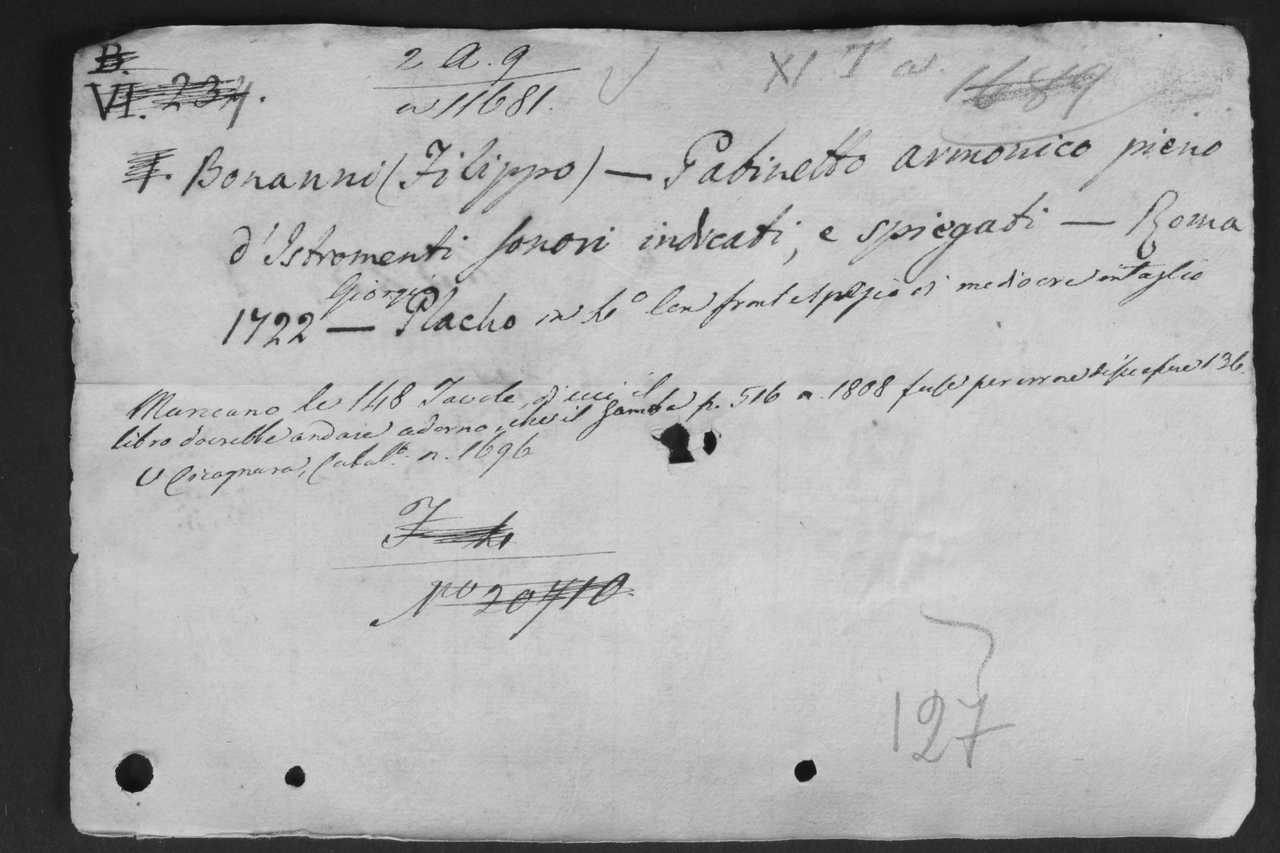 B.
VI. 237.
2 A. 9
n 11681.
XI T
1689
Bonanni (Filippo) — Gabinetto armonico pieno
d'Istromenti sonori indicati, e spiegati — Roma
1722 — Giorgio Placho in 4° Con frontespizio di mediocre intaglio
Mancano le 148 Tavole, di cui il
libro dovrebbe andare adorno, che il Gamba p. 516 n. 1808 disse per errore essere 136.
V Cicognara, Catal. n. 1696
N° 20710
127